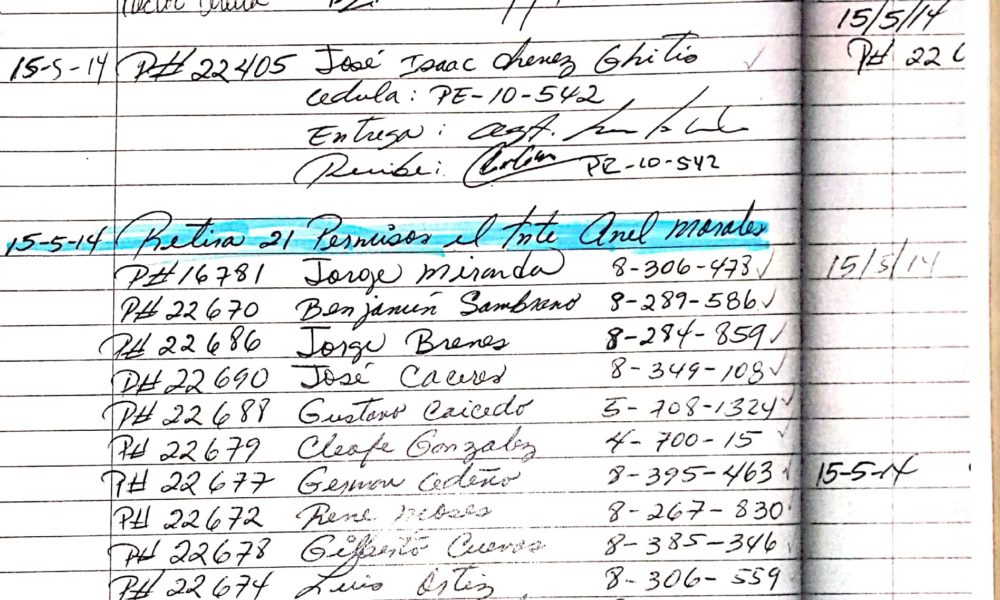 15/5/14
15-5-14 P# 22405 José Isaac Chenez Ghitis
P# 22
cedula: PE-10-542
Entrega: 
Recibe: PE-10-542
15-5-14 Retira 21 Permisos el Tnte Anel Morales
P# 16781 Jorge Miranda 8-306-473
15/5/14
P# 22670 Benjamín Sambrano 8-289-586
P# 22686 Jorge Brenes 8-284-859
P# 22690 José Caceres 8-349-108
P# 22688 Gustavo Caicedo 5-708-1324
P# 22679 Cleofe Gonzalez 4-700-15
P# 22677 German Cedeño 8-395-463
15-5-14
P# 22672 Rene Moses 8-267-830
P# 22678 Gilberto Cuevas 8-385-346
P# 22674 Luis Ortiz 8-306-559